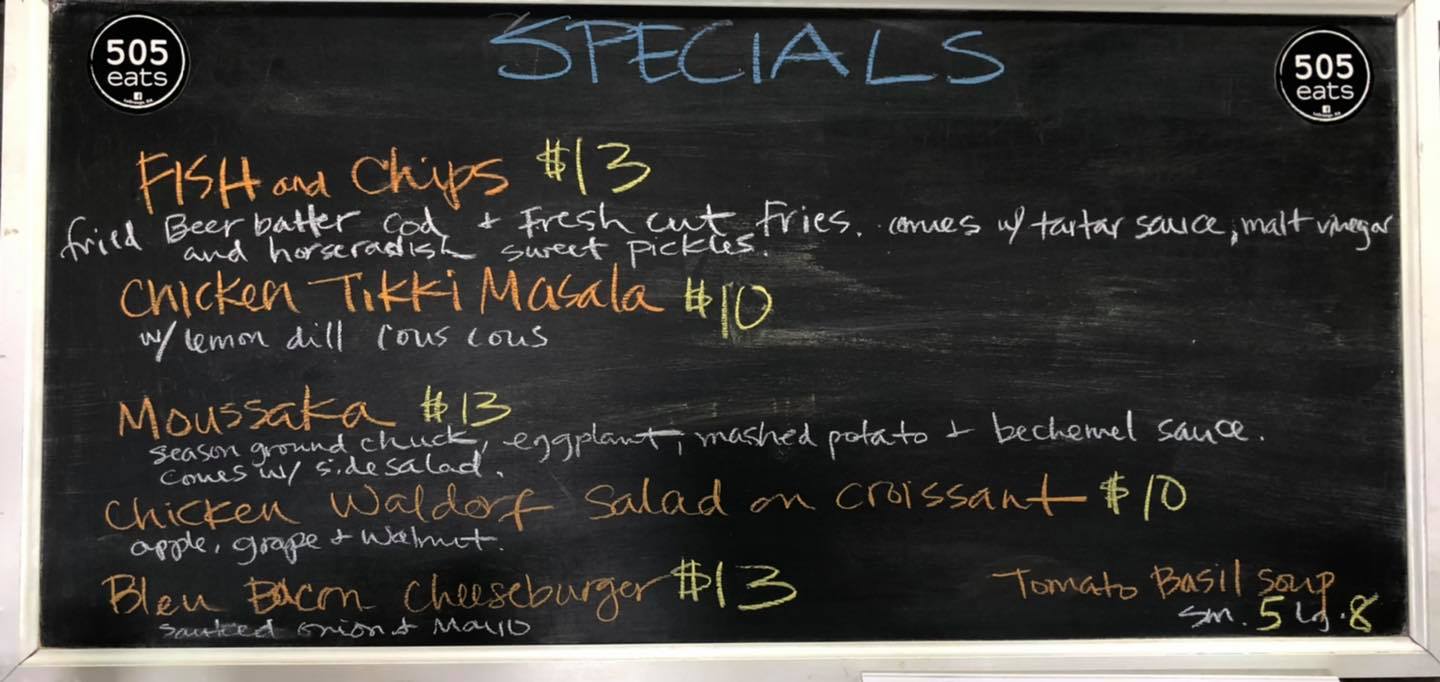 505
eats
SPECIALS
505
eats
FISH and Chips $13
fried Beer batter cod + Fresh cut Fries. comes w/ tartar sauce, malt vinegar
and horseradish sweet pickles.
Chicken Tikki Masala $10
w/ lemon dill cous cous
Moussaka $13
season ground chuck, eggplant, mashed potato + bechemel sauce.
comes w/ side salad.
Chicken Waldorf salad on croissant $10
apple, grape + walnut.
Bleu Bacon cheeseburger $13
sauteed onion + Mayo
Tomato Basil soup
sm. 5 lg. 8